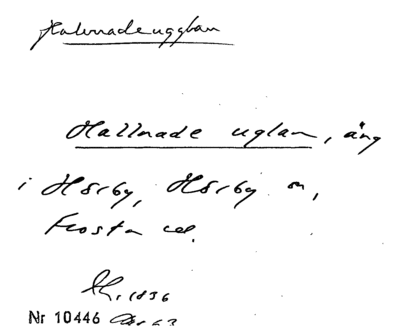 Halmadeugglan
Hallmade uglan, äng
i Hörby, Hörby sn,
Frosta hd.
1836
Nr 10446